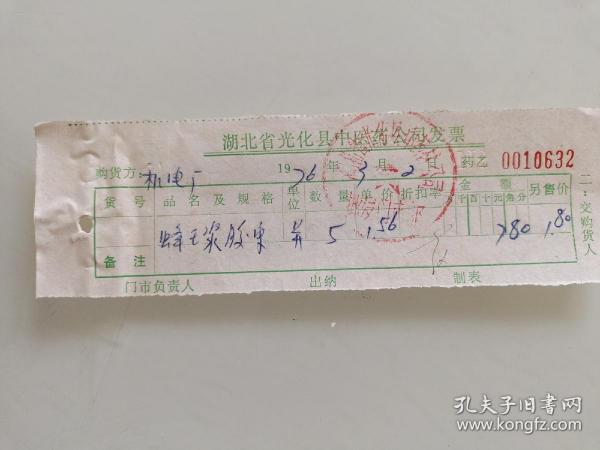 湖北省光化县中医药公司发票
购货方: 机电厂 1976年3月2日 药乙 0010632
货号 品名及规格 单位 数量 单价 折扣率 金额 千百十元角分 另售价
蜂王浆胶 5 1.56 780 1.80
备注
门市负责人 出纳 制表
二:交购货人
孔夫子旧书网
www.kongfz.com